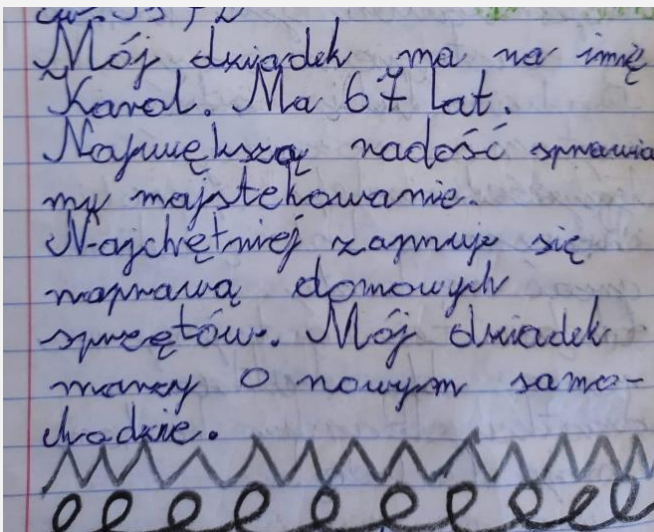 Mój dziadek ma na imię
Karol. Ma 67 lat.
Największą radość sprawia
mu majstekowanie.
Najchętniej zajmuje się
naprawą domowych
sprzętów. Mój dziadek
marzy o nowym samo-
chodzie.